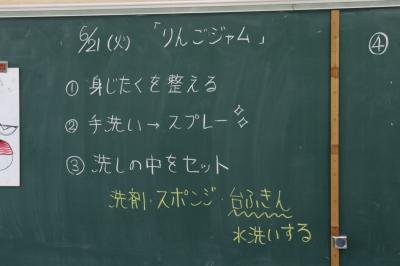 6/21(火) 「りんごジャム」
① 身じたくを整える
② 手洗い→スプレー
③ 洗しの中をセット
洗剤・スポンジ・台ふきん
水洗いする
④